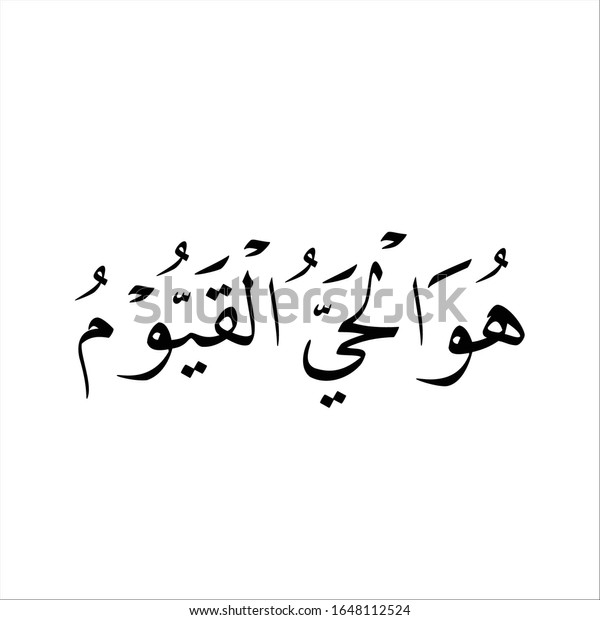 هُوَ الْحَيُّ الْقَيُّوْمُ
shutterstock
shutterstock.com · 1648112524